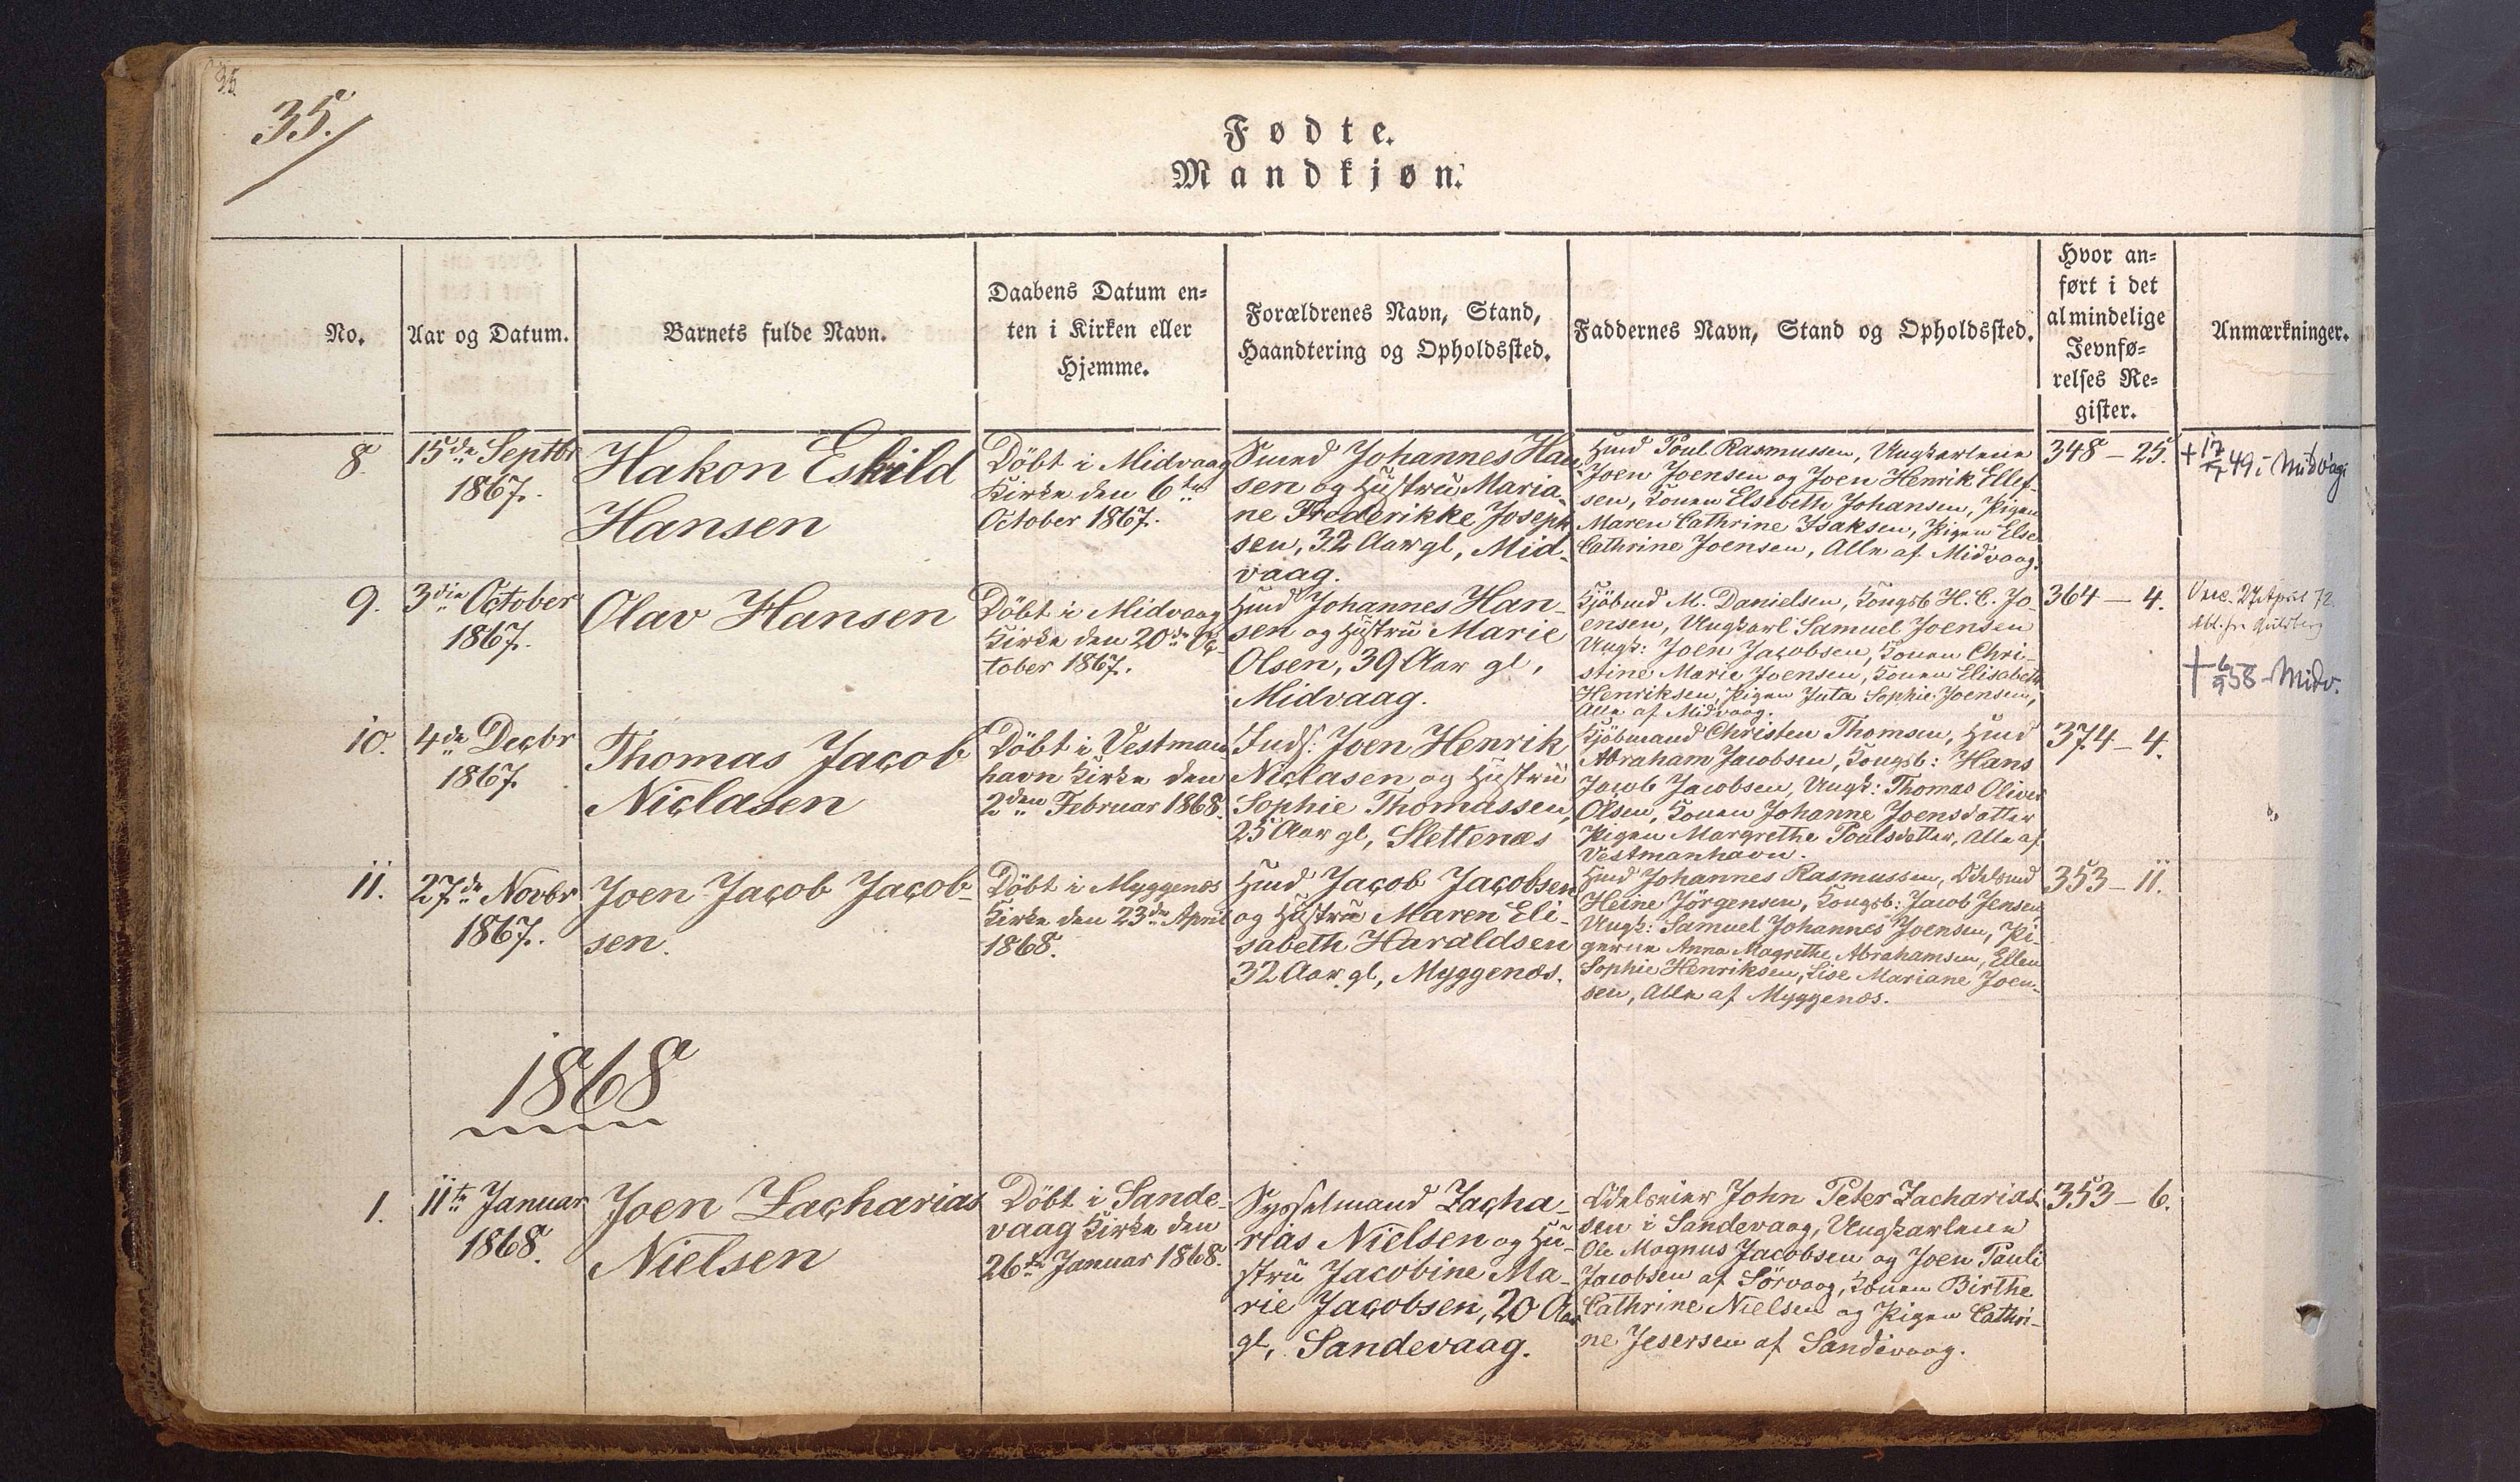 35.
35.
Fødte.
Mandkjøn.
No.
Aar og Datum.
Barnets fulde Navn.
Daabens Datum en=
ten i Kirken eller
Hjemme.
Forældrenes Navn, Stand,
Haandtering og Opholdssted.
Faddernes Navn, Stand og Opholdssted.
Hvor an=
ført i det
almindelige
Jevnfø=
relses Re=
gister.
Anmærkninger.
8.
15de Septbr
1867.
Hakon Eskild
Hansen
Döbt i Midvaag
Kirke den 6te
October 1867.
Smed Johannes Han
sen og Hustru Maria-
ne Frederikke Joseph
sen, 32 Aar gl, Mid-
vaag.
Hmd Poul Rasmussen, Ungkarlene
Joen Joensen og Joen Henrik Ellef-
sen, Konen Elsebeth Johansen, Pigen
Maren Cathrine Isaksen, Pigen Else
Cathrine Joensen, Alle af Midvaag.
348 - 25.
+ 49 i Midvág.
9.
3die October
1867.
Olav Hansen
Döbt i Midvaag
Kirke den 20de Oc-
tober 1867.
Hmd Johannes Han-
sen og Hustru Marie
Olsen, 39 Aar gl,
Midvaag.
Kjöbmd M. Danielsen, Kongsb H. C. Jo-
ensen, Ungkarl Samuel Joensen
Ungk: Joen Jacobsen, Konen Chri-
stine Marie Joensen, Konen Elisabeth
Henriksen, Pigen Juta Sophie Joensen,
Alle af Midvaag.
364 - 4.
Vacc. 27 April 72.
Att. fra Guldberg
+ 6/9 58 - Midv.
10.
4de Decbr
1867.
Thomas Jacob
Niclasen
Döbt i Vestman
havn Kirke den
2den Februar 1868.
Inds: Joen Henrik
Niclasen og Hustru
Sophie Thomassen,
25 Aar gl, Slettenæs
Kjöbmand Christen Thomsen, Hmd
Abraham Jacobsen, Kongsb: Hans
Jacob Jacobsen, Ungk: Thomas Oliver
Olsen, Konen Johanne Joensdatter
Pigen Margrethe Poulsdatter, Alle af
Vestmanhavn.
374 - 4.
11.
27de Novbr
1867.
Joen Jacob Jacob-
sen.
Döbt i Myggenæs
Kirke den 23de April
1868.
Hmd Jacob Jacobsen
og Hustru Maren Eli-
sabeth Haraldsen
32 Aar gl, Myggenæs.
Hmd Johannes Rasmussen, Odelsmd
Heine Jörgensen, Kongsb: Jacob Jensen
Ungk: Samuel Johannes Joensen, Pi-
gerne Anna Magrethe Abrahamsen, Ellen
Sophie Henriksen, Lise Mariane Joen-
sen, Alle af Myggenæs.
353 - 11.
1868
1.
11te Januar
1868.
Joen Zacharias
Nielsen
Döbt i Sande-
vaag Kirke den
26de Januar 1868.
Sysselmand Zacha-
rias Nielsen og Hu-
stru Jacobine Ma-
rie Jacobsen, 20 Aar
gl, Sandevaag.
Odelseier John Peter Zacharias-
sen i Sandevaag, Ungkarlene
Ole Magnus Jacobsen og Joen Pauli
Jacobsen af Sörvaag, Konen Birthe
Cathrine Nielsen og Pigen Cathri-
ne Jesersen af Sandevaag.
353 - 6.